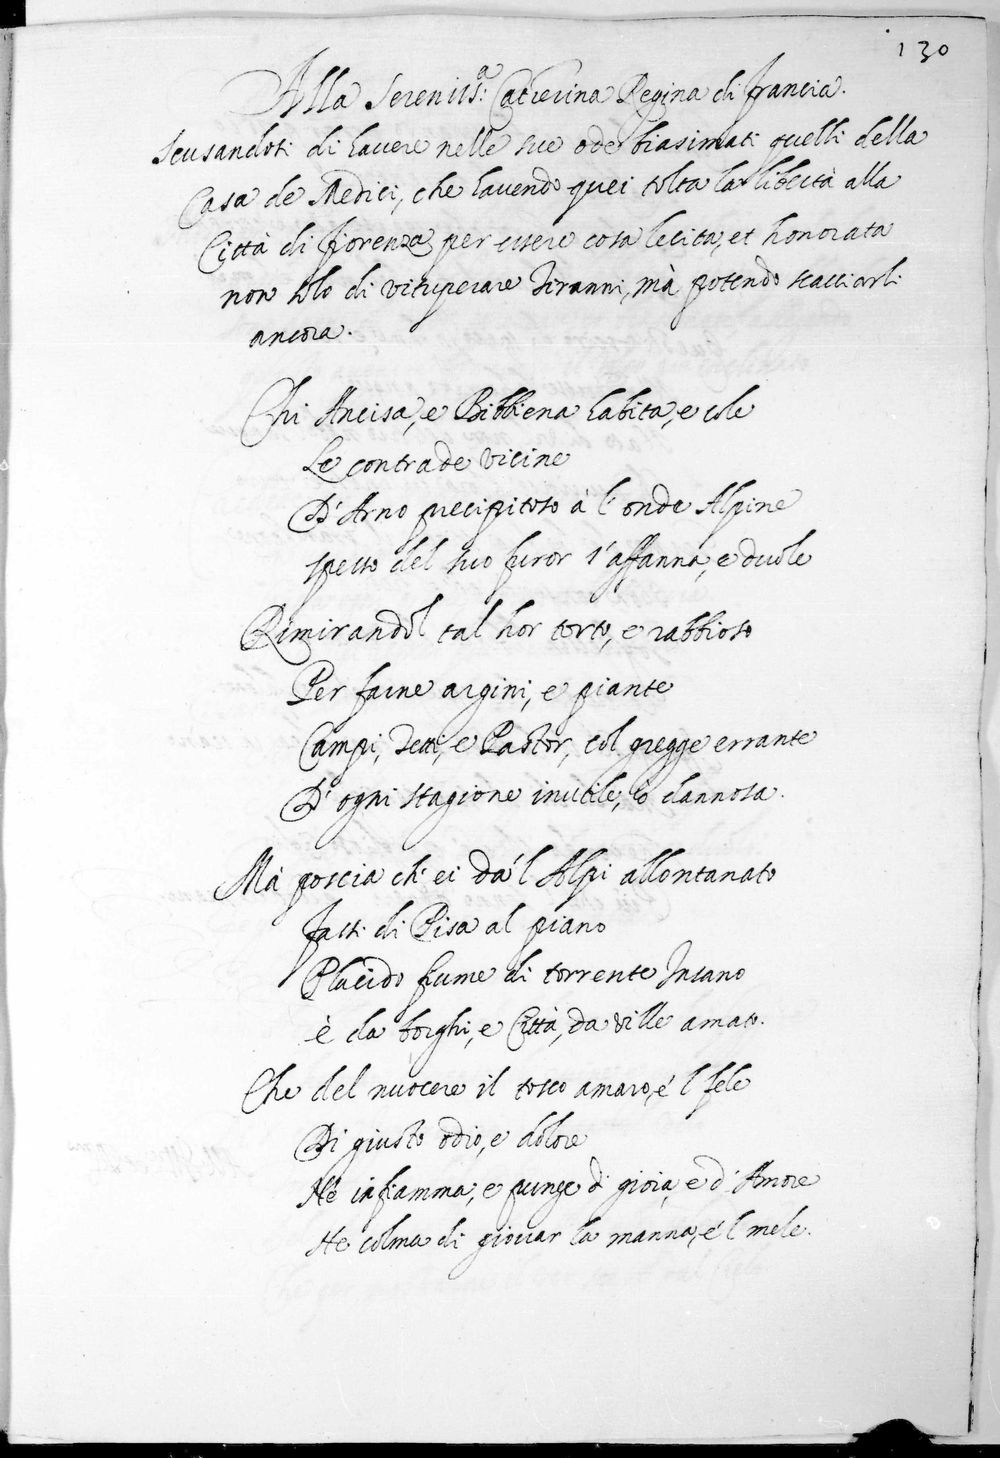 130
Alla Sereniss:ª Catterina Regina di Francia.
Scusandosi di havere nelle sue ode biasimati quelli della
Casa de Medici, che havendo quei tolta la libertà alla
Città di Fiorenza, per essere cosa lecita, et honorata
non solo di vituperare Tiranni, mà potendo scacciarli
ancora.
Chi Ancisa, e Bibbiena habita, e cole
Le contrade vicine
D'Arno precipitoso à l'onde Alpine
spesso del suo furor s'affanna, e duole
Rimirandol tal hor torto, e rabbioso
Per farne argini, e piante
Campi, Tetti, e Pastor, col gregge errante
D'ogni stagione inutile, ò dannosa.
Mà poscia ch'ei da'l Alpi allontanato
Fassi di Pisa al piano
Placido fiume di torrente Insano
è da borghi, e Città, da ville amato.
Che del nuocere il tosco amaro, e'l fele
Di giusto odio, e dolore
Ne infiamma, e punge di gioia, e d'Amore
Ne colma di giovar la manna, e'l mele.